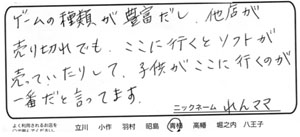 ゲームの種類が豊富だし、他店が
売り切れでも、ここに行くとソフトが
売っていたりして、子供がここに行くのが
一番だと言ってます。
ニックネーム れんママ
よく利用されるお店を
立川 小作 羽村 昭島 青梅 高幡 堀之内 八王子